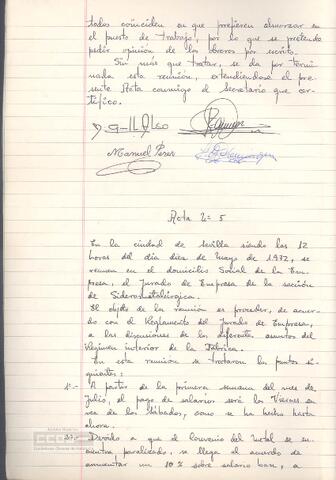 todos coinciden en que prefieren almorzar en
el puesto de trabajo, por lo que se pretende
pedir opinión de los obreros por escrito.
Sin más que tratar, se da por termi
nada esta reunión, extendiendose el pre
sente Acta conmigo el Secretario que cer-
tifico.
Manuel Pérez
Acta nº 5
En la ciudad de Sevilla siendo las 12
horas del día diez de Mayo de 1972, se
reunen en el domicilio Social de la Em
presa, el Jurado de Empresa de la sección
de Siderometalúrgica.
El objeto de la reunión es proceder, de acuer
do con el Reglamento del Jurado de Empresa,
a las discusiones de los diferentes asuntos del
Régimen interior de la Fabrica.
En esta reunión se trataron los puntos si-
guientes:
1º.- A partir de la primera semana del mes de
Julio, el pago de salarios será los Viernes en
vez de los Sábados, como se ha hecho hasta
ahora.
2º.- Devido a que el Convenio del Metal se en
cuentra paralizado, se llega al acuerdo de
aumentar un 10% sobre salario base, a